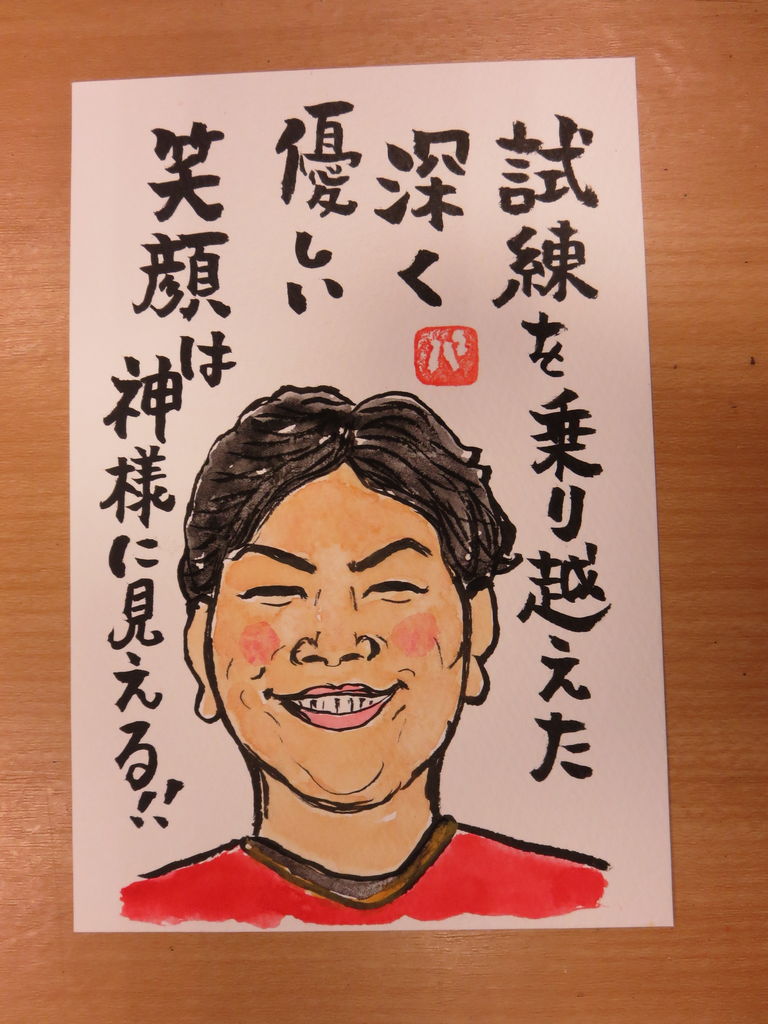 試練を乗り越えた
深く
優しい
笑顔は
神様に見える!!